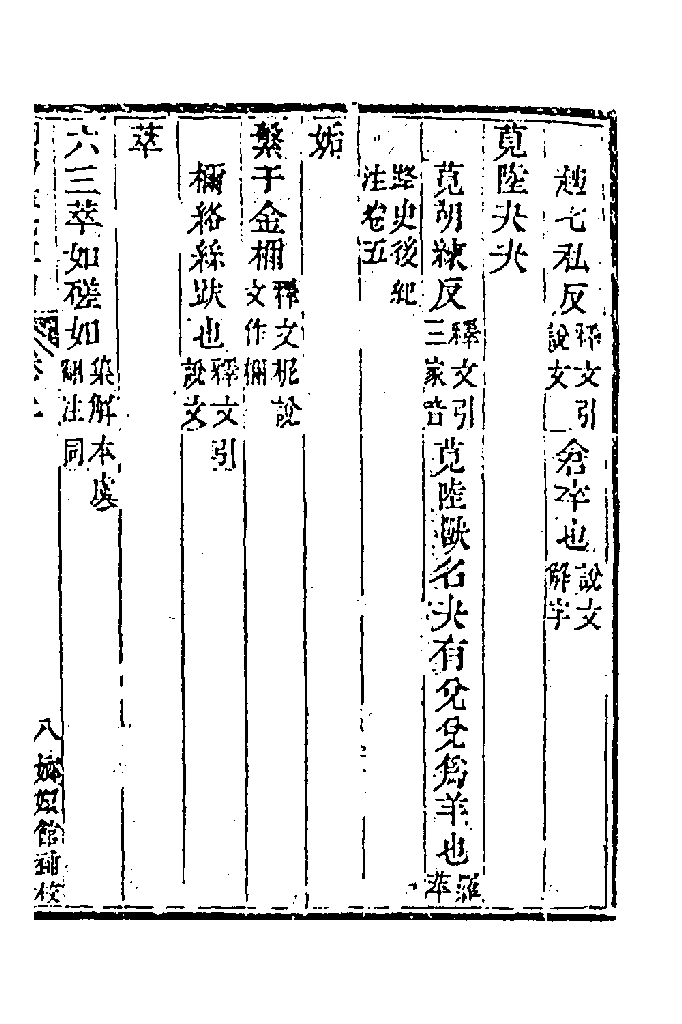 趑七私反釋文引說文倉卒也說文解字
莧陸夬夬
莧胡練反釋文引三家音莧陸獸名夬有兌兌爲羊也羅苹
路史後紀注卷五
姤
繫于金檷釋文柅說文作檷
檷絡絲趺也釋文引說文
萃
六三萃如磋如集解本虞翻注同
八嫏嬛館補校